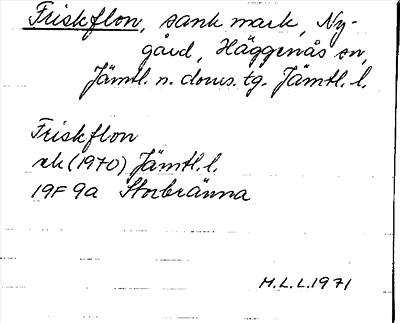 Friskflon, sank mark, Ny-
gård, Häggenås sn,
Jämtl. n. doms. tg. Jämtl. l.
Friskflon
rk (1970) Jämtl. l.
19F 9a Storbränna
H.L.L. 1971